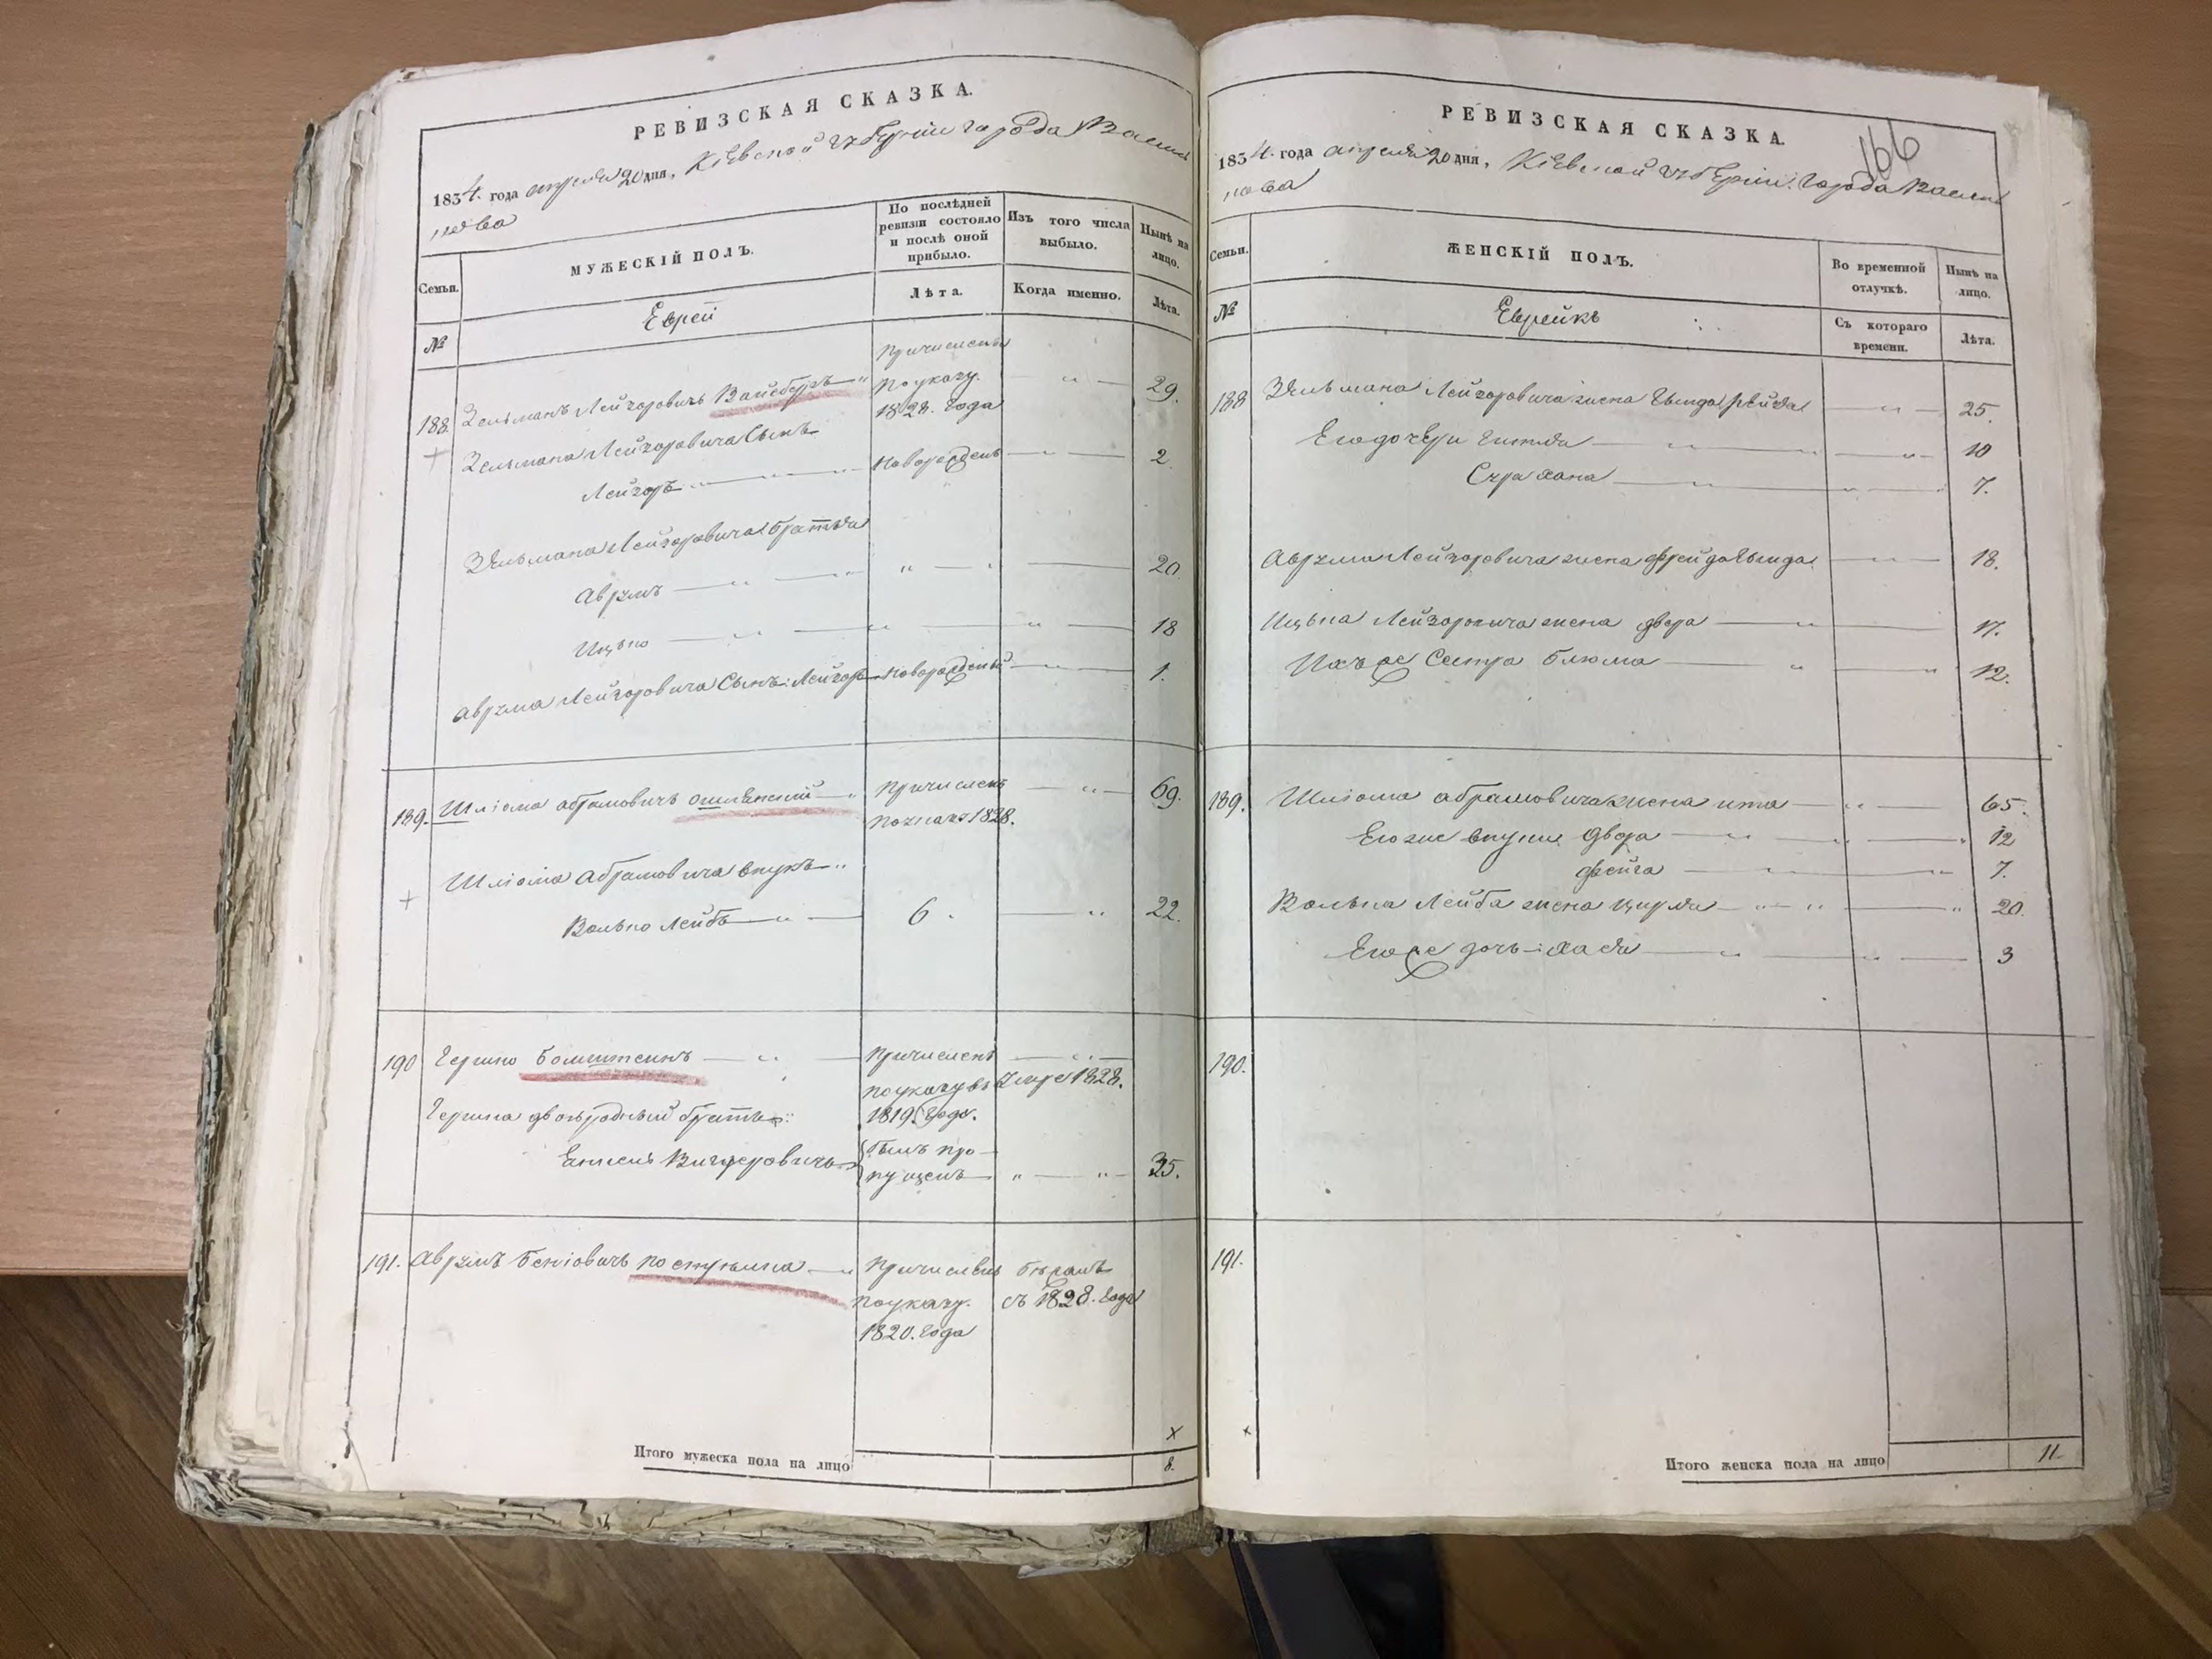 РЕВИЗСКАЯ СКАЗКА.
1834. года апреля 20 дня, Кіевской губерніи города Василь
кова
Семьи.
МУЖЕСКІЙ ПОЛЪ.
По послѣдней ревизіи состояло и послѣ оной прибыло.
Изъ того числа выбыло.
Нынѣ на лицо.
№
Еврей
Лѣта.
Когда именно.
Лѣта.
188. Зельманъ Лейзоровичъ Вайсбергъ Причисленъ по указу 1828. года 29.
Зельмана Лейзоровича Сынъ
Лейзоръ новорожденъ 2.
Зельмана Лейзоровича братья
Аврумъ 20.
Ицько 18
Аврума Лейзоровича Сынъ: Лейзоръ новорожденый 1.
189. Шліома Абрамовичъ Причисленъ 1828. 69.
Шліома Абрамовича внукъ
Волько Лейбъ 6. 22.
190 Гершко Причисленъ по указу въ 1819. года. 1828.
Гершка двоюродный братъ:
былъ про-
пущенъ 35.
191. Аврумъ Причисленъ по указу. 1820. года
съ 1828. года
Итого мужеска пола на лицо 8.
РЕВИЗСКАЯ СКАЗКА.
166
1834. года апреля 20 дня, Кіевской губерніи. города Василь
кова
Семьи.
ЖЕНСКІЙ ПОЛЪ.
Во временной отлучкѣ.
Нынѣ на лицо.
№
Еврейкѣ
Съ котораго времени.
Лѣта.
188 Зельмана Лейзоровича жена 25.
Его дочери 10
Сура Хана 7.
Аврума Лейзоровича жена 18.
Ицька Лейзоровича жена двора 17.
Ихъ же Сестра Блюма 12.
189. Шліома абрамовича жена ита 65.
Его же внуки Двора 12
фейга 7.
Волька Лейба жена 20.
Его же дочь: Хася 3
190.
191.
Итого женска пола на лицо 11.